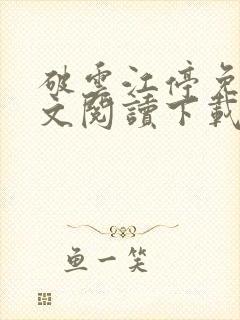 破雲江停免
文閱讀下載
魚一笑